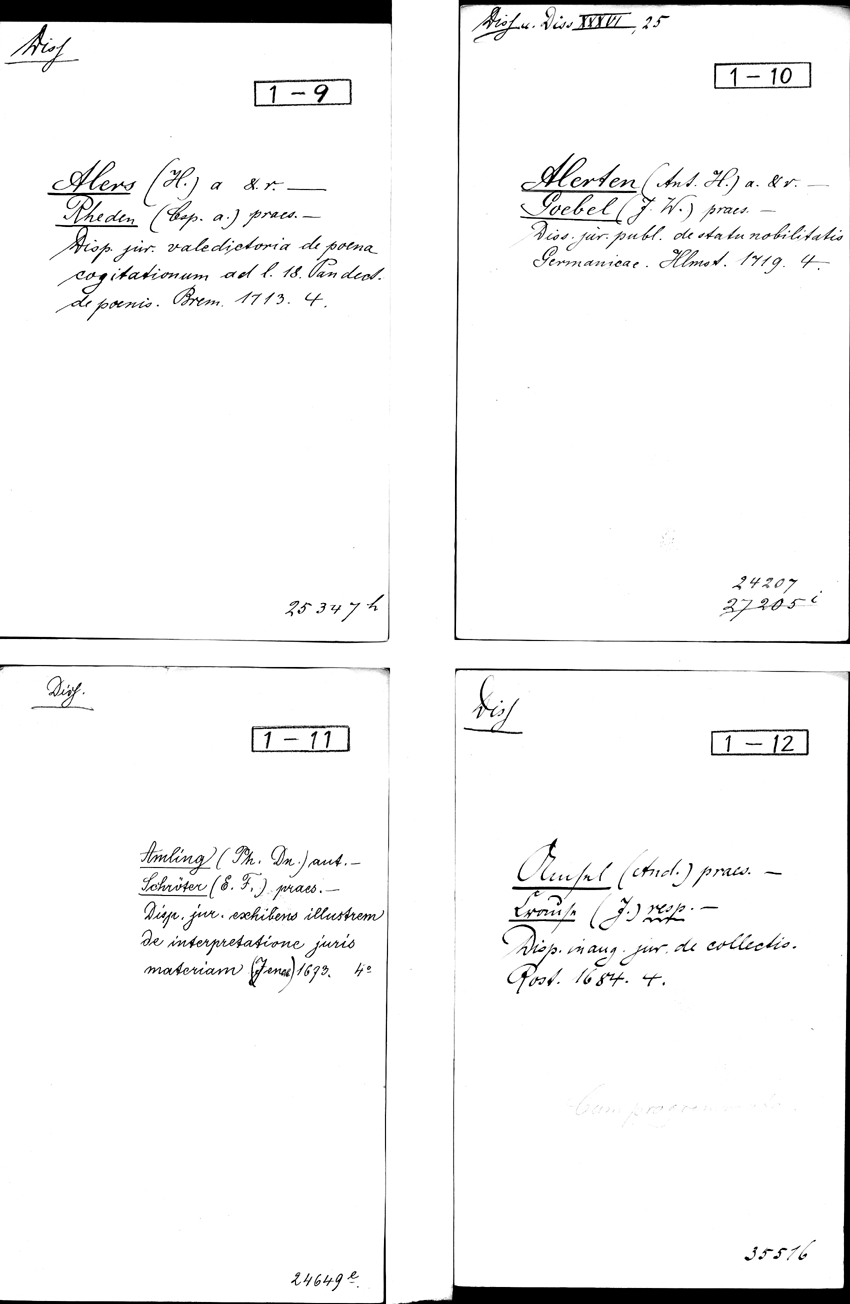 Diss
1 – 9
Alers (H.) a & r. —
Rheden (Csp. a.) praes. —
Disp. jur. valedictoria de poena
cogitationum ad l. 18. Pandect.
de poenis. Brem. 1713. 4.
25347 h
Diss u. Diss XXXVI, 25
1 – 10
Alerten (Ant. H.) a. & r. —
Goebel (J. W.) praes. —
Diss. jur. publ. de statu nobilitatis
Germanicae. Hlmst. 1719. 4.
24207
27205 i
Diss.
1 – 11
Amling (Ph. Dn.) aut. —
Schröter (E. F.) praes. —
Disp. jur. exhibens illustrem
de interpretatione juris
materiam (Jenae) 1673. 4º
24649 e.
Diss
1 – 12
Amsel (And.) praes. —
Krause (J.) resp. —
Disp. inaug. jur. de collectis.
Rost. 1684. 4.
Cum programmate.
35516